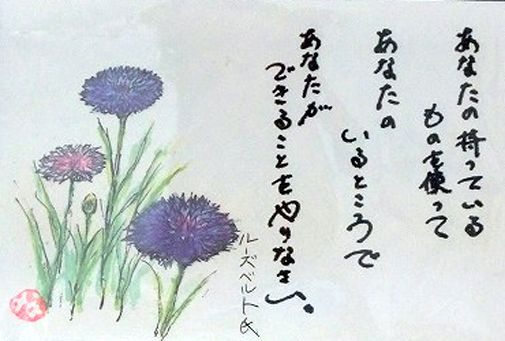 あなたの持っている
ものを使って
あなたの
いるところで
あなたが
できることをやりなさい。
ルーズベルト氏